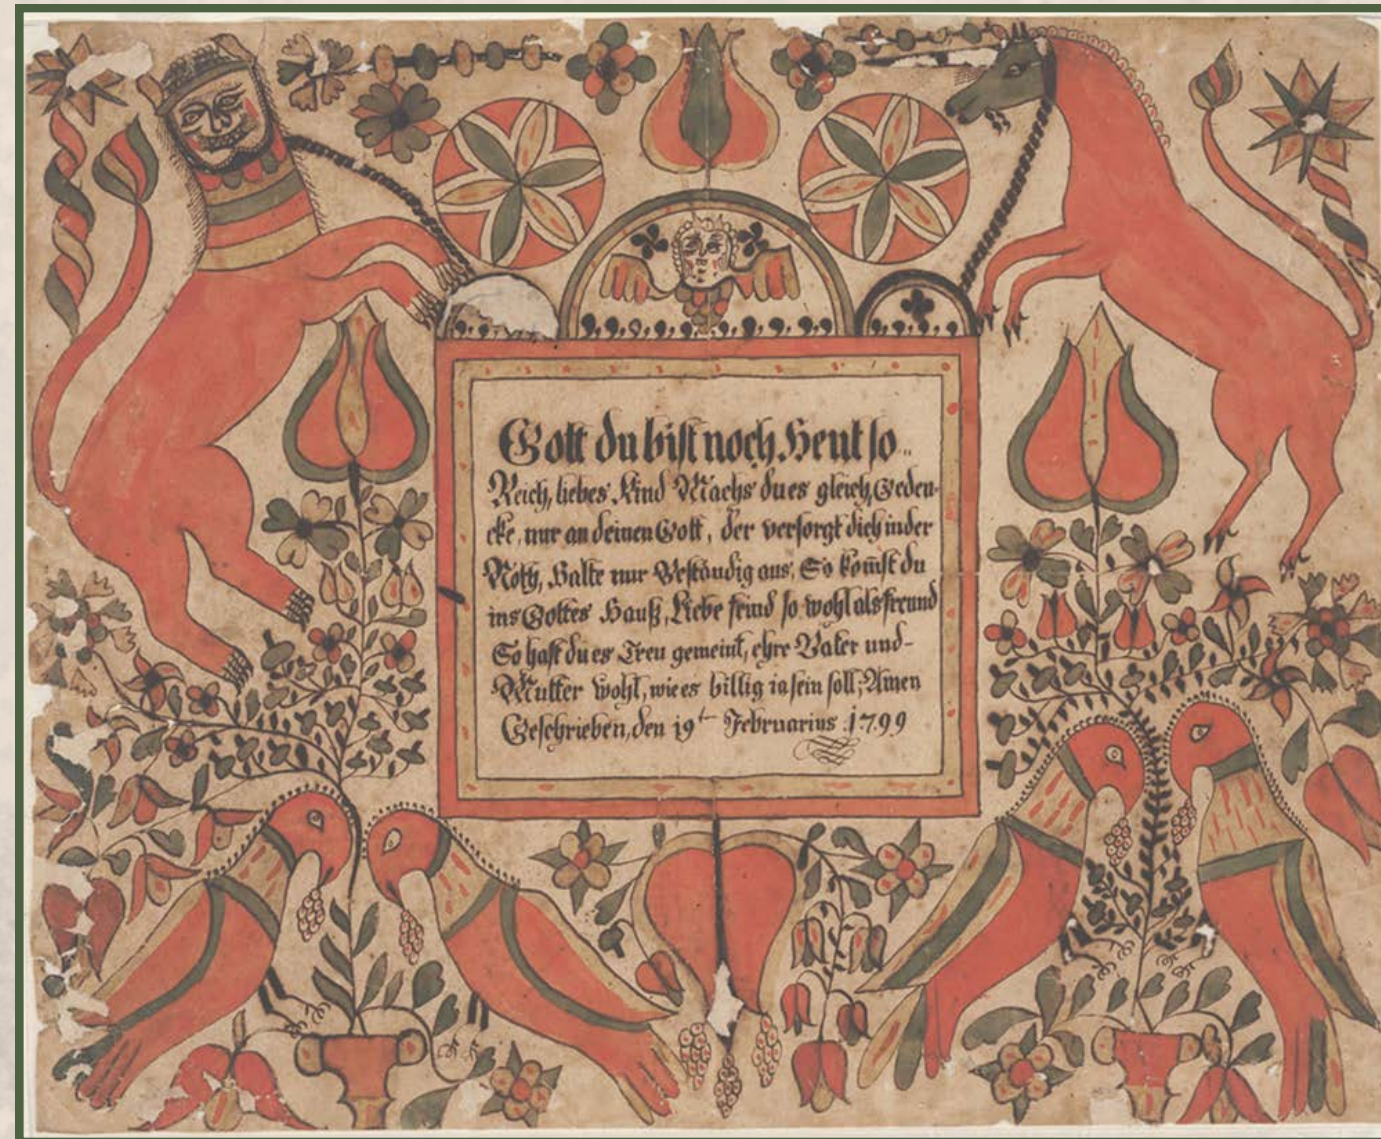 Gott du bist noch Heut so„
Reich, liebes Kind Machs du es gleich, Geden-
cke, nur an deinen Gott, der versorgt dich in der
Noth, Halte nur Beständig aus, So kom̄st du
ins Gottes Hauß, Liebe feind so wohl als freund
So hast du es Treu gemeint, ehre Vater und-
Mutter wohl, wie es billig ia sein soll; Amen
Geschrieben, den 19t Februarius 1799